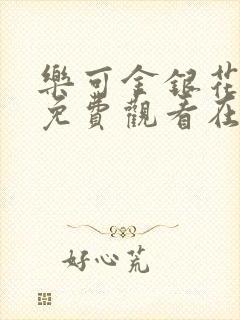 樂可金銀花
免費觀看在
好心荒